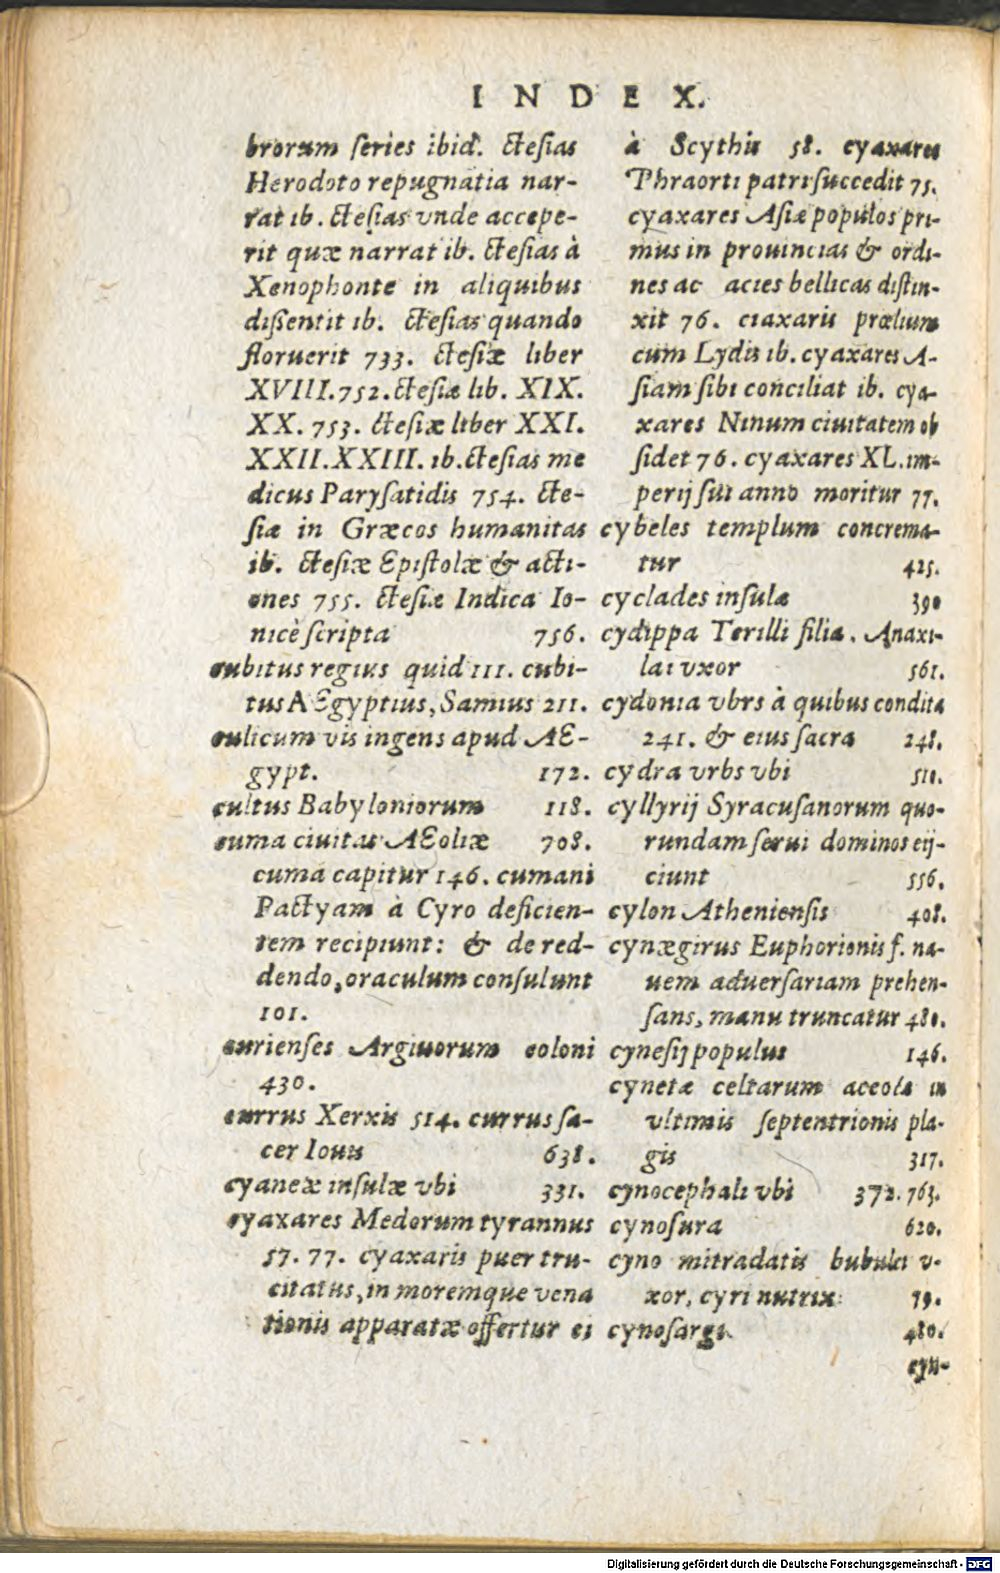 INDEX.
brorum series ibid. Ctesias
Herodoto repugnātia nar-
rat ib. Ctesias vnde accepe-
rit quæ narrat ib. Ctesias à
Xenophonte in aliquibus
dissentit ib. Ctesias quando
floruerit 733. Ctesiæ liber
XVIII. 752. Ctesiæ lib. XIX.
XX. 753. Ctesiæ liber XXI.
XXII. XXIII. ib. Ctesias me
dicus Parysatidis 754. Cte-
siæ in Græcos humanitas
ib. Ctesiæ Epistolæ & acti-
ones 755. Ctesiæ Indica Io-
nicè scripta 756.
cubitus regius quid 111. cubi-
tus AEgyptius, Samius 211.
culicum vis ingens apud AE-
gypt. 172.
cultus Babyloniorum 118.
cuma ciuitas AEoliæ 708.
cuma capitur 146. cumani
Pactyam à Cyro deficien-
tem recipiunt: & de red-
dendo, oraculum consulunt
101.
curienses Argiuorum coloni
430.
currus Xerxis 514. currus sa-
cer Iouis 638.
cyaneæ insulæ vbi 331.
cyaxares Medorum tyrannus
57. 77. cyaxaris puer tru-
citatus, in moremque vena
tionis apparatæ offertur ei
à Scythis 58. cyaxares
Phraorti patri succedit 75.
cyaxares Asiæ populos pri-
mus in prouincias & ordi-
nes ac acies bellicas distin-
xit 76. ciaxaris prælium
cum Lydis ib. cyaxares A-
siam sibi conciliat ib. cya-
xares Ninum ciuitatem ob
sidet 76. cyaxares XL. im-
perij sui anno moritur 77.
cybeles templum concrema-
tur 425.
cyclades insulæ 390
cydippa Terilli filia, Anaxi-
lai vxor 561.
cydonia vbrs à quibus condita
241. & eius sacra 248.
cydra vrbs vbi 510.
cyllyrij Syracusanorum quo-
rundam serui dominos eij-
ciunt 556.
cylon Atheniensis 408.
cynægirus Euphorionis f. na-
uem aduersariam prehen-
sans, manu truncatur 480.
cynesij populus 146.
cynetæ celtarum aceolæ in
vltimis septentrionis pla-
gis 317.
cynocephali vbi 372. 763.
cynosura 620.
cyno mitradatis bubulci v-
xor, cyri nutrix 79.
cynosargi 480.
cyn-
Digitalisierung gefördert durch die Deutsche Forschungsgemeinschaft - DFG